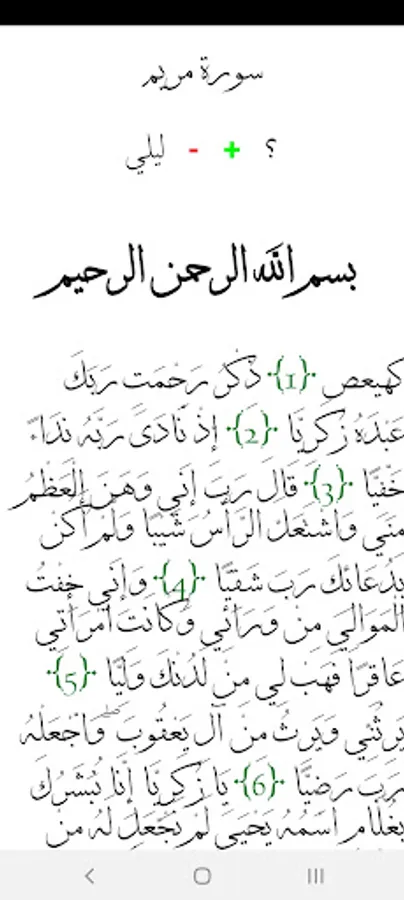 سورة مريم
؟ + - ليلي
بسم الله الرحمن الرحيم
كهيعص ‏{1}‏ ذِكْرُ رَحْمَتِ رَبِّكَ
عَبْدَهُ زَكَرِيَّا ‏{2}‏ إِذْ نَادَىٰ رَبَّهُ نِدَاءً
خَفِيًّا ‏{3}‏ قَالَ رَبِّ إِنِّي وَهَنَ الْعَظْمُ
مِنِّي وَاشْتَعَلَ الرَّأْسُ شَيْبًا وَلَمْ أَكُنْ
بِدُعَائِكَ رَبِّ شَقِيًّا ‏{4}‏ وَإِنِّي خِفْتُ
الْمَوَالِيَ مِنْ وَرَائِي وَكَانَتِ امْرَأَتِي
عَاقِرًا فَهَبْ لِي مِنْ لَدُنْكَ وَلِيًّا ‏{5}‏
يَرِثُنِي وَيَرِثُ مِنْ آلِ يَعْقُوبَ ۖ وَاجْعَلْهُ
رَبِّ رَضِيًّا ‏{6}‏ يَا زَكَرِيَّا إِنَّا نُبَشِّرُكَ
بِغُلَامٍ اسْمُهُ يَحْيَىٰ لَمْ نَجْعَلْ لَهُ مِنْ